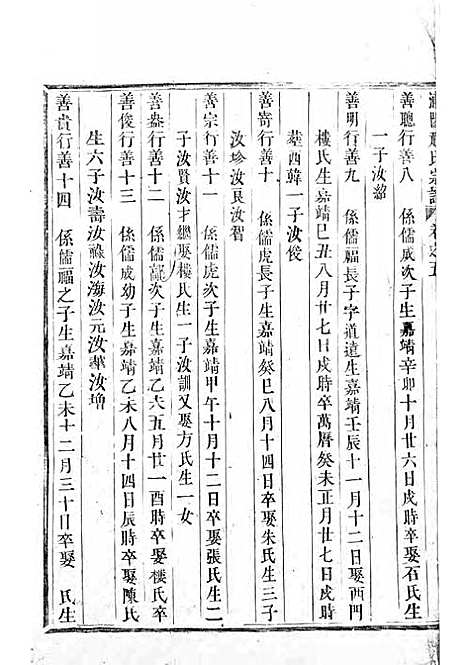 氏宗譜 卷之五
善聰行善八 係儒成次子生嘉靖辛卯十月廿六日戌時卒娶石氏生
一子汝紹
善明行善九 係儒福長子字道遠生嘉靖壬辰十一月十二日娶西門
樓氏生嘉靖己丑八月廿七日戌時卒萬曆癸未正月廿七日戌時
塟西韓一子汝俊
善寄行善十 係儒虎長子生嘉靖癸巳八月十四日卒娶朱氏生三子
汝珍汝良汝智
善宗行善十一 係儒虎次子生嘉靖甲午十月十二日卒娶張氏生二
子汝賢汝才繼娶樓氏生一子汝訓又娶方氏生一女
善泰行善十二 係儒 次子生嘉靖乙未五月廿一酉時卒娶樓氏卒
善俊行善十三 係儒成幼子生嘉靖乙未八月十四日辰時卒娶陳氏
生六子汝壽汝祿汝海汝元汝華汝增
善貴行善十四 係儒福之子生嘉靖乙未十二月三十日卒娶 氏生